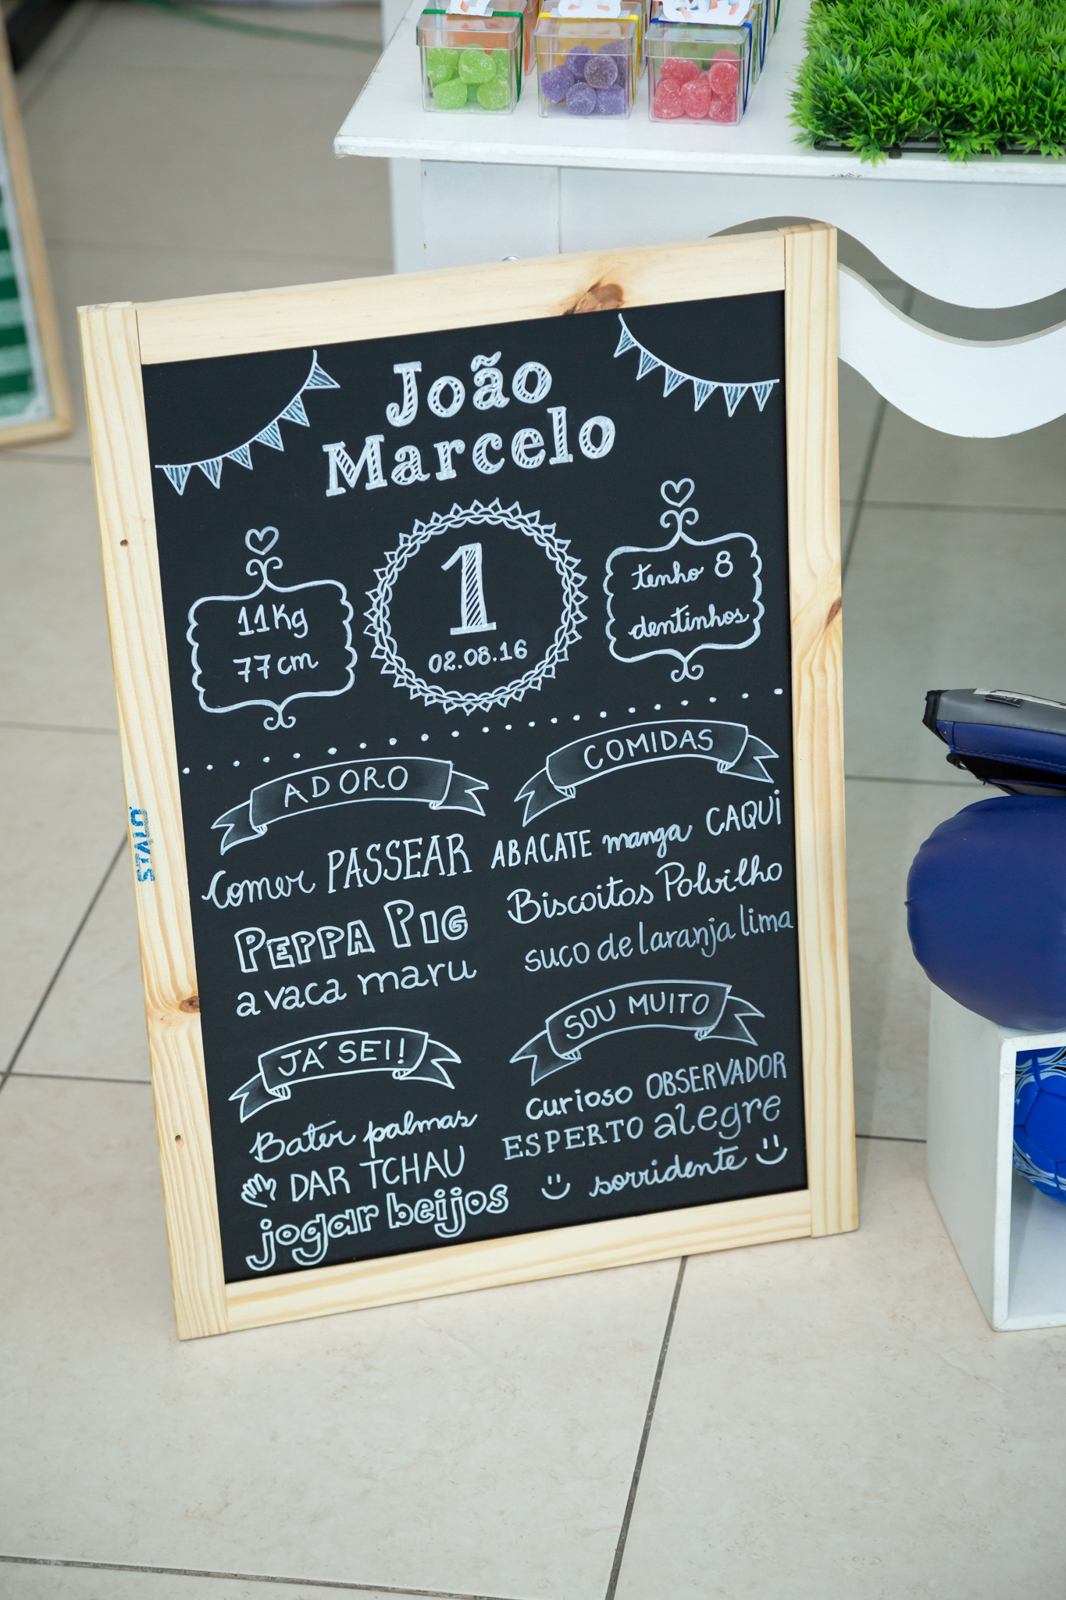 João
Marcelo
11Kg
77cm
1
02.08.16
tenho 8
dentinhos
ADORO
Comer PASSEAR
PEPPA PIG
a vaca maru
COMIDAS
ABACATE manga CAQUI
Biscoitos Polvilho
suco de laranja lima
JÁ SEI!
Bater palmas
DAR TCHAU
jogar beijos
SOU MUITO
curioso OBSERVADOR
ESPERTO alegre
sorridente